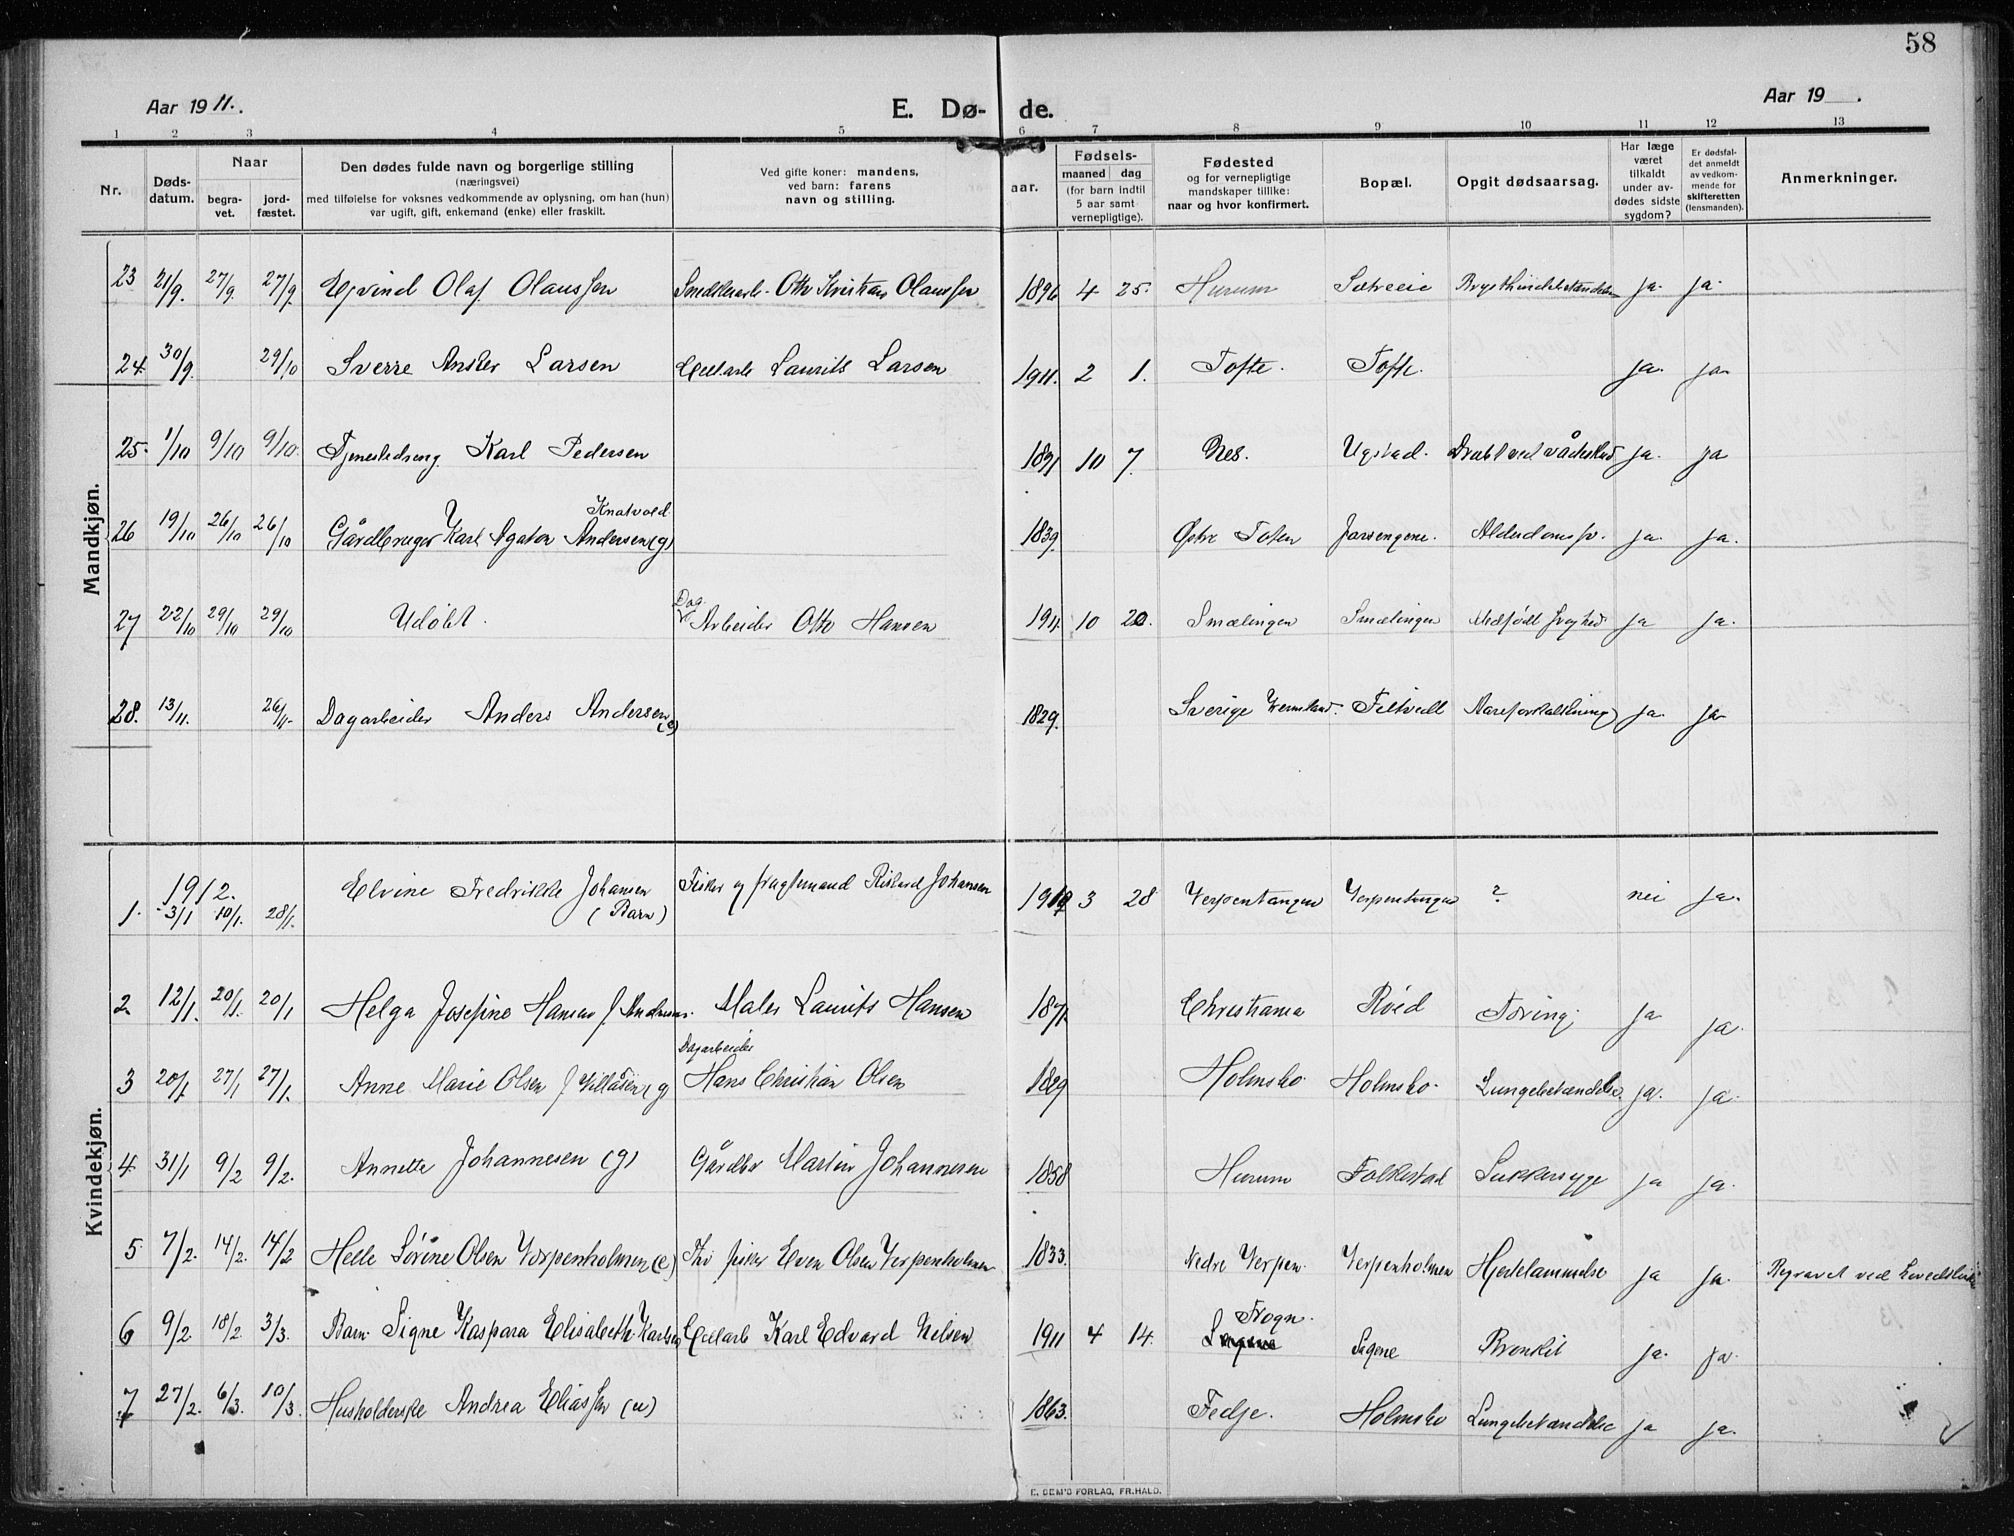 58
Aar 19 11.
E. Dø- de.
Aar 19 .
1 2 3 4 5 6 7 8 9 10 11 12 13
Nr.
Døds-
datum.
Naar
begra-
vet.
jord-
fæstet.
Den dødes fulde navn og borgerlige stilling
(næringsvei)
med tilføielse for voksnes vedkommende av oplysning, om han (hun)
var ugift, gift, enkemand (enke) eller fraskilt.
Ved gifte koner: mandens,
ved barn: farens
navn og stilling.
aar.
Fødsels-
maaned dag
(for børn indtil
5 aar samt
vernepligtige).
Fødested
og for vernepligtige
mandskaper tillike:
naar og hvor konfirmert.
Bopæl.
Opgit dødsaarsag.
Har læge
været
tilkaldt
under av-
dødes sidste
sygdom?
Er dødsfal-
det anmeldt
av vedkom-
mende for
skifteretten
(lensmanden).
Anmerkninger.
Mandkjøn.
23 21/9. 27/9. 27/9 Ejvind Olaf Olaussen Otto Kristian Olaussen 1896 4 25. Hurum Sætreeie ja. ja.
24. 30/9. 29/10 Sverre Ansker Larsen Cell.arb. Laurits Larsen 1911. 2 1. Tofte. Tofte. ja. ja.
25. 1/10 9/10 9/10. Tjenestedreng Karl Pedersen 1891 10 7. Nes. Ugstad. Dræbt ved vådeskud ja. ja
Knatvold
26 19/10 26/10 26/10 Gårdbruger Karl Agaton Andersen (g) 1839. Østre Toten ja. ja.
Dag
27 22/10 29/10 29/10 Udøbt. Arbeider Otto Hansen 1911. 10 20. Smælingen Smælingen Medfødt svaghed ja ja.
28. 13/11. 26/11. Dagarbeider Anders Andersen (e) 1829. Sverige Vermland. Filtvedt Åreforkalkning ja. ja.
Kvindekjøn.
1912.
1. 3/1 10/1. 28/1. Elvine Fredrikke Johansen Fisker og fragtemand Rikard Johansen 3 28 Verpentangen Verpentangen ? nei ja.
(Barn)
2 12/1. 20/1. 20/1 Helga Josefine Hansen f. Andersen. Maler Laurits Hansen 1871. Christiania Røed Tæring. ja ja.
Dagarbeider
3 20/1 27/1 27/1. Anne Marie Olsen f. (g) Hans Christian Olsen 1829 Holmsbo. Holmsbo. Lungebetændelse. ja. ja.
4 31/1 9/2 9/2. Annette Johannesen (g) Gårdbr Martin Johannesen 1858 Hurum Folkestad Sukkersyge ja ja.
5 7/2. 14/2. 14/2 Helle Sørine Olsen Verpenholmen (e) fisker Even Olsen Verpenholmen 1833. Nedre Verpen. Verpenholmen Hjertelammelse ja ja. Begravet ved
Frogn.
6 9/2. 18/2. 3/3. Barn Signe Kaspara Elisabeth Karlsen Cellarb Karl Edvard Nelsen 1911 4 14. Sagene Bronkit ja. ja.
7 27/2. 6/3. 10/3. Husholderske Andrea Eliassen (u) 1863. Fedje. Holmsbo Lungebetændelse ja ja.
E. SEM'S FORLAG, FR.HALD.